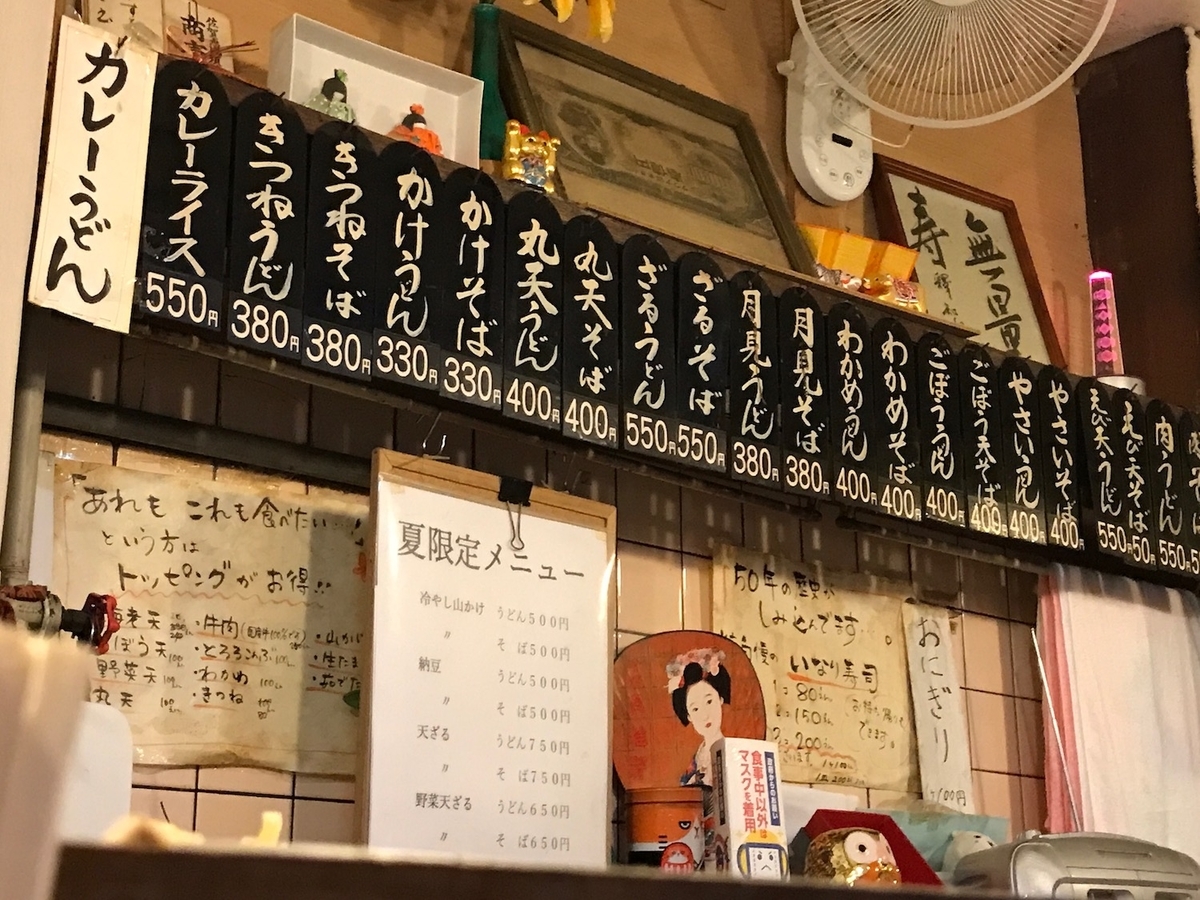 商売
カレーうどん
カレーライス
550円
きつねうどん
380円
きつねそば
380円
かけうどん
330円
かけそば
330円
丸天うどん
400円
丸天そば
400円
ざるうどん
550円
ざるそば
550円
月見うどん
380円
月見そば
380円
わかめうどん
400円
わかめそば
400円
ごぼううどん
400円
ごぼう天そば
400円
やさいうどん
400円
やさいそば
400円
えび天うどん
550円
えび天そば
肉うどん
550円
無量
寿
「あれも これも食べたい
という方は
トッピングがお得!!
海老天
ごぼう天 100
野菜天 100
丸天 100
・牛肉
・とろろこんぶ
・わかめ 100
・きつね
・山かけ
夏限定メニュー
冷やし山かけ うどん500円
〃 そば500円
納豆 うどん500円
〃 そば500円
天ざる うどん750円
〃 そば750円
野菜天ざる うどん650円
〃 そば650円
50年の歴史が
しみ込んでます。
自慢の いなり寿司
80
150
200
できます。
おにぎり
100円
食事中以外は
マスクを着用